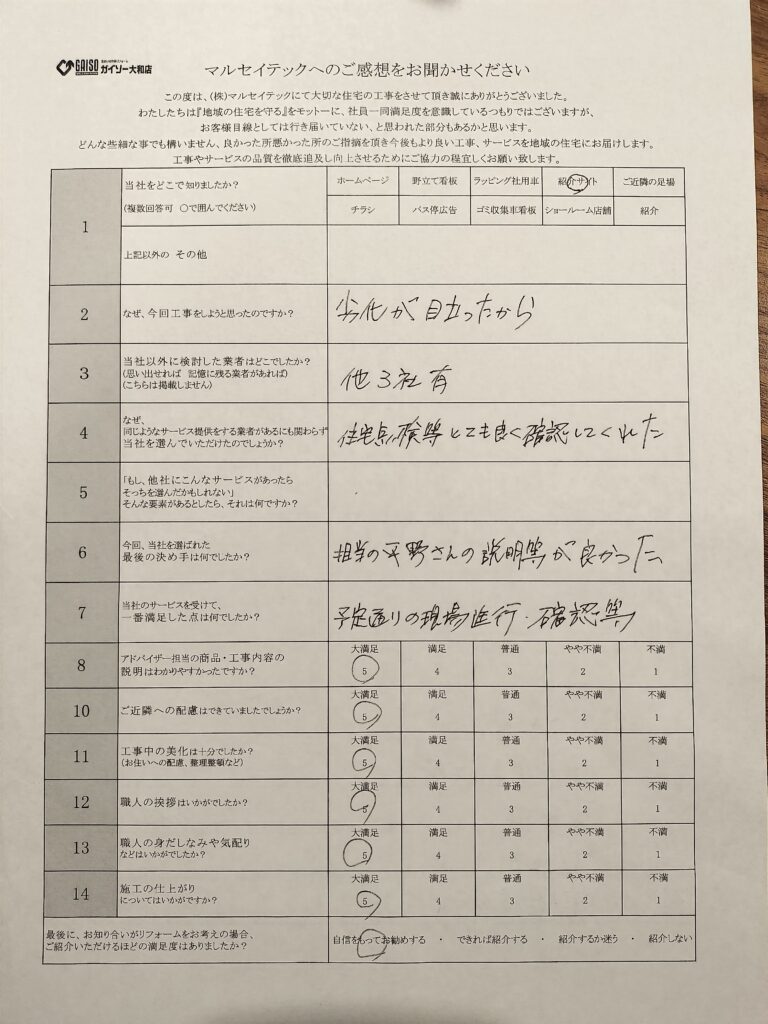 GAISO
ガイソー大和店
マルセイテックへのご感想をお聞かせください
この度は、(株)マルセイテックにて大切な住宅の工事をさせて頂き誠にありがとうございました。
わたしたちは『地域の住宅を守る』をモットーに、社員一同満足度を意識しているつもりではございますが、
お客様目線としては行き届いていない、と思われた部分もあるかと思います。
どんな些細な事でも構いません、良かった所悪かった所のご指摘を頂き今後もより良い工事、サービスを地域の住宅にお届けします。
工事やサービスの品質を徹底追及し向上させるためにご協力の程宜しくお願い致します。
1
当社をどこで知りましたか?
(複数回答可 ○で囲んでください)
ホームページ 野立て看板 ラッピング社用車 紹介サイト ご近隣の足場
チラシ バス停広告 ゴミ収集車看板 ショールーム店舗 紹介
上記以外の その他
2
なぜ、今回工事をしようと思ったのですか?
劣化が目立ったから
3
当社以外に検討した業者はどこでしたか?
(思い出せれば 記憶に残る業者があれば)
(こちらは掲載しません)
他3社有
4
なぜ、
同じようなサービス提供をする業者があるにも関わらず
当社を選んでいただけたのでしょうか?
住宅点検等とても良く確認してくれた
5
「もし、他社にこんなサービスがあったら
そっちを選んだかもしれない」
そんな要素があるとしたら、それは何ですか?
6
今回、当社を選ばれた
最後の決め手は何でしたか?
担当の平野さんの説明等が良かった
7
当社のサービスを受けて、
一番満足した点は何でしたか?
予定通りの現場進行・確認等
8
アドバイザー担当の商品・工事内容の
説明はわかりやすかったですか?
大満足 満足 普通 やや不満 不満
5 4 3 2 1
10
ご近隣への配慮はできていましたでしょうか?
大満足 満足 普通 やや不満 不満
5 4 3 2 1
11
工事中の美化は十分でしたか?
(お住いへの配慮、整理整頓など)
大満足 満足 普通 やや不満 不満
5 4 3 2 1
12
職人の挨拶はいかがでしたか?
大満足 満足 普通 やや不満 不満
5 4 3 2 1
13
職人の身だしなみや気配り
などはいかがでしたか?
大満足 満足 普通 やや不満 不満
5 4 3 2 1
14
施工の仕上がり
についてはいかがですか?
大満足 満足 普通 やや不満 不満
5 4 3 2 1
最後に、お知り合いがリフォームをお考えの場合、
ご紹介いただけるほどの満足度はありましたか?
自信をもってお勧めする ・ できれば紹介する ・ 紹介するか迷う ・ 紹介しない